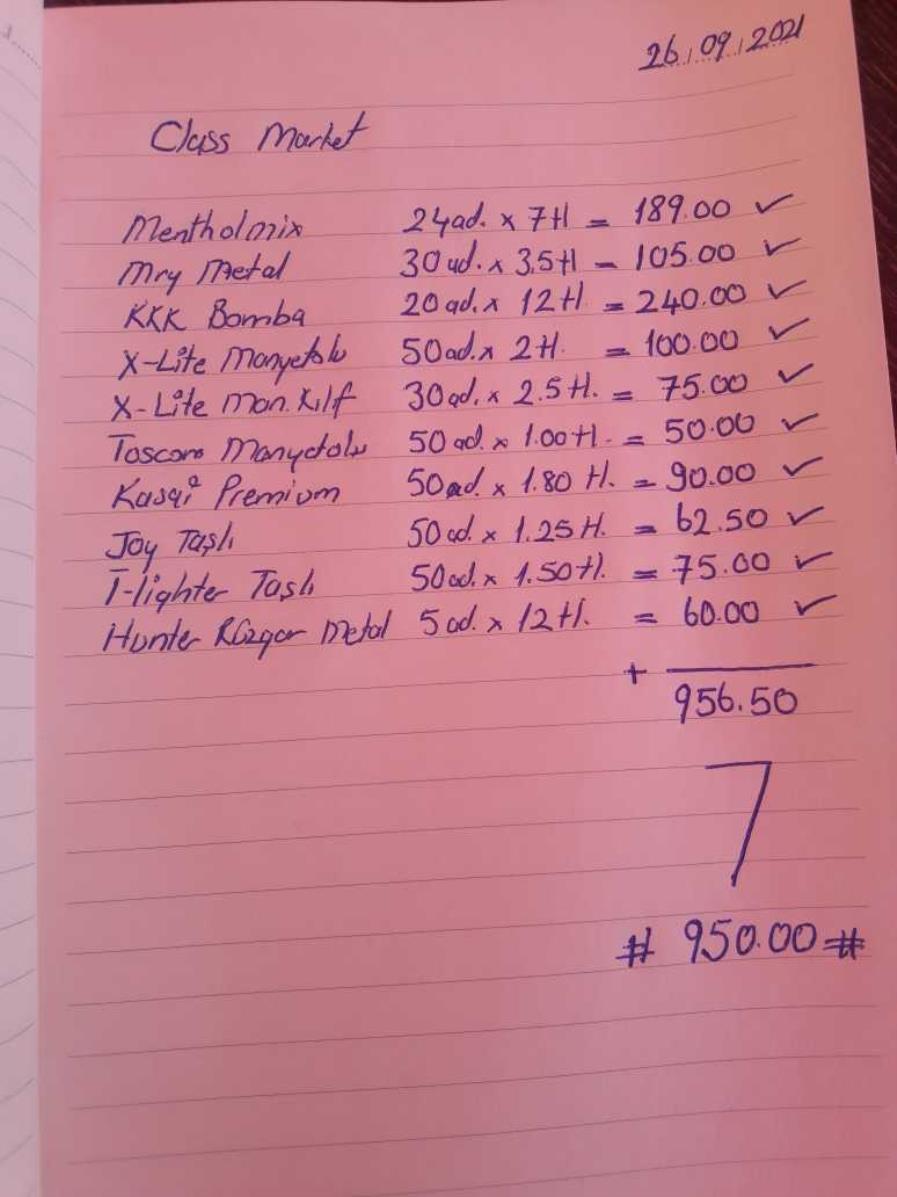 26.09.2021
Class Market
Mentholmix 24ad. x 7tl = 189.00 ✓
Mry Metal 30ad. x 3.5tl = 105.00 ✓
KKK Bomba 20ad. x 12tl = 240.00 ✓
X-Lite Manyetolu 50ad. x 2tl. = 100.00 ✓
X-Lite Man. Kılf 30ad. x 2.5tl. = 75.00 ✓
Toscano Manyetolu 50ad. x 1.00tl. = 50.00 ✓
Premium 50ad. x 1.80 tl. = 90.00 ✓
Joy Taşlı 50ad. x 1.25tl. = 62.50 ✓
T-lighter Taşlı 50ad. x 1.50tl. = 75.00 ✓
Hunter Rüzgar Metal 5ad. x 12tl. = 60.00 ✓
+
956.50
# 950.00 #